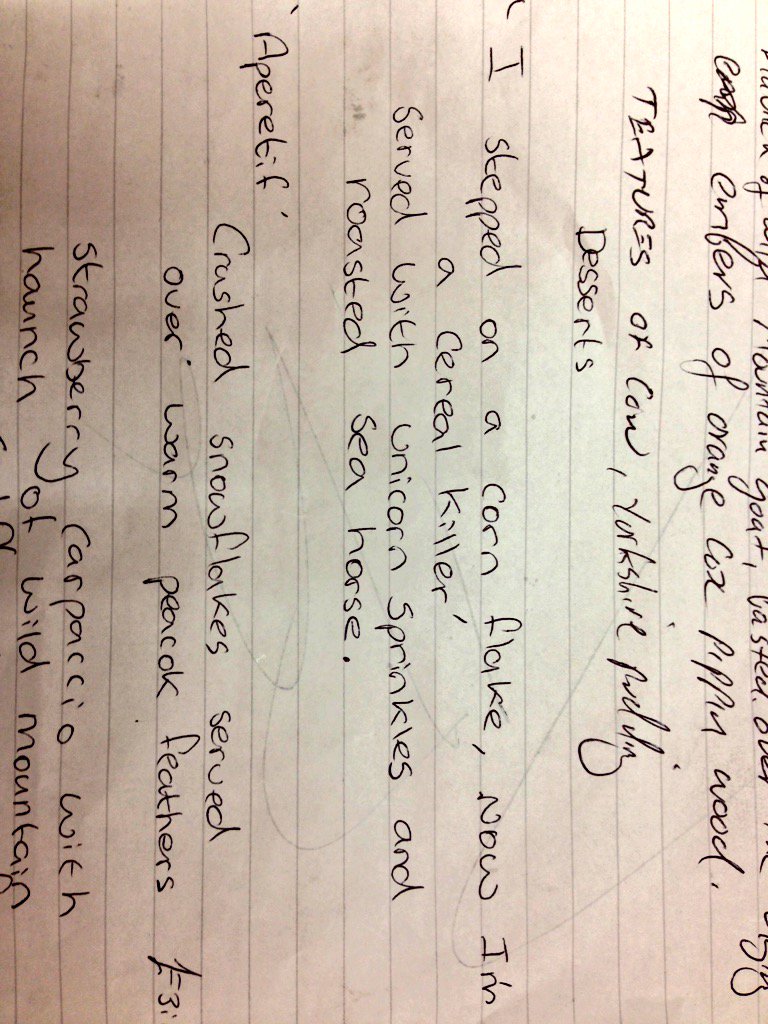 of wild Mountain goat, basted over the dying
embers of orange Cox Pippin wood.
TEATURES OF Cow, Yorkshire pudding
Desserts
' I stepped on a corn flake, Now I'm
a cereal killer'
Served with unicorn sprinkles and
roasted sea horse.
'Aperetif'
Crushed snowflakes served
over warm peacok feathers
Strawberry carpaccio with
haunch of wild mountain